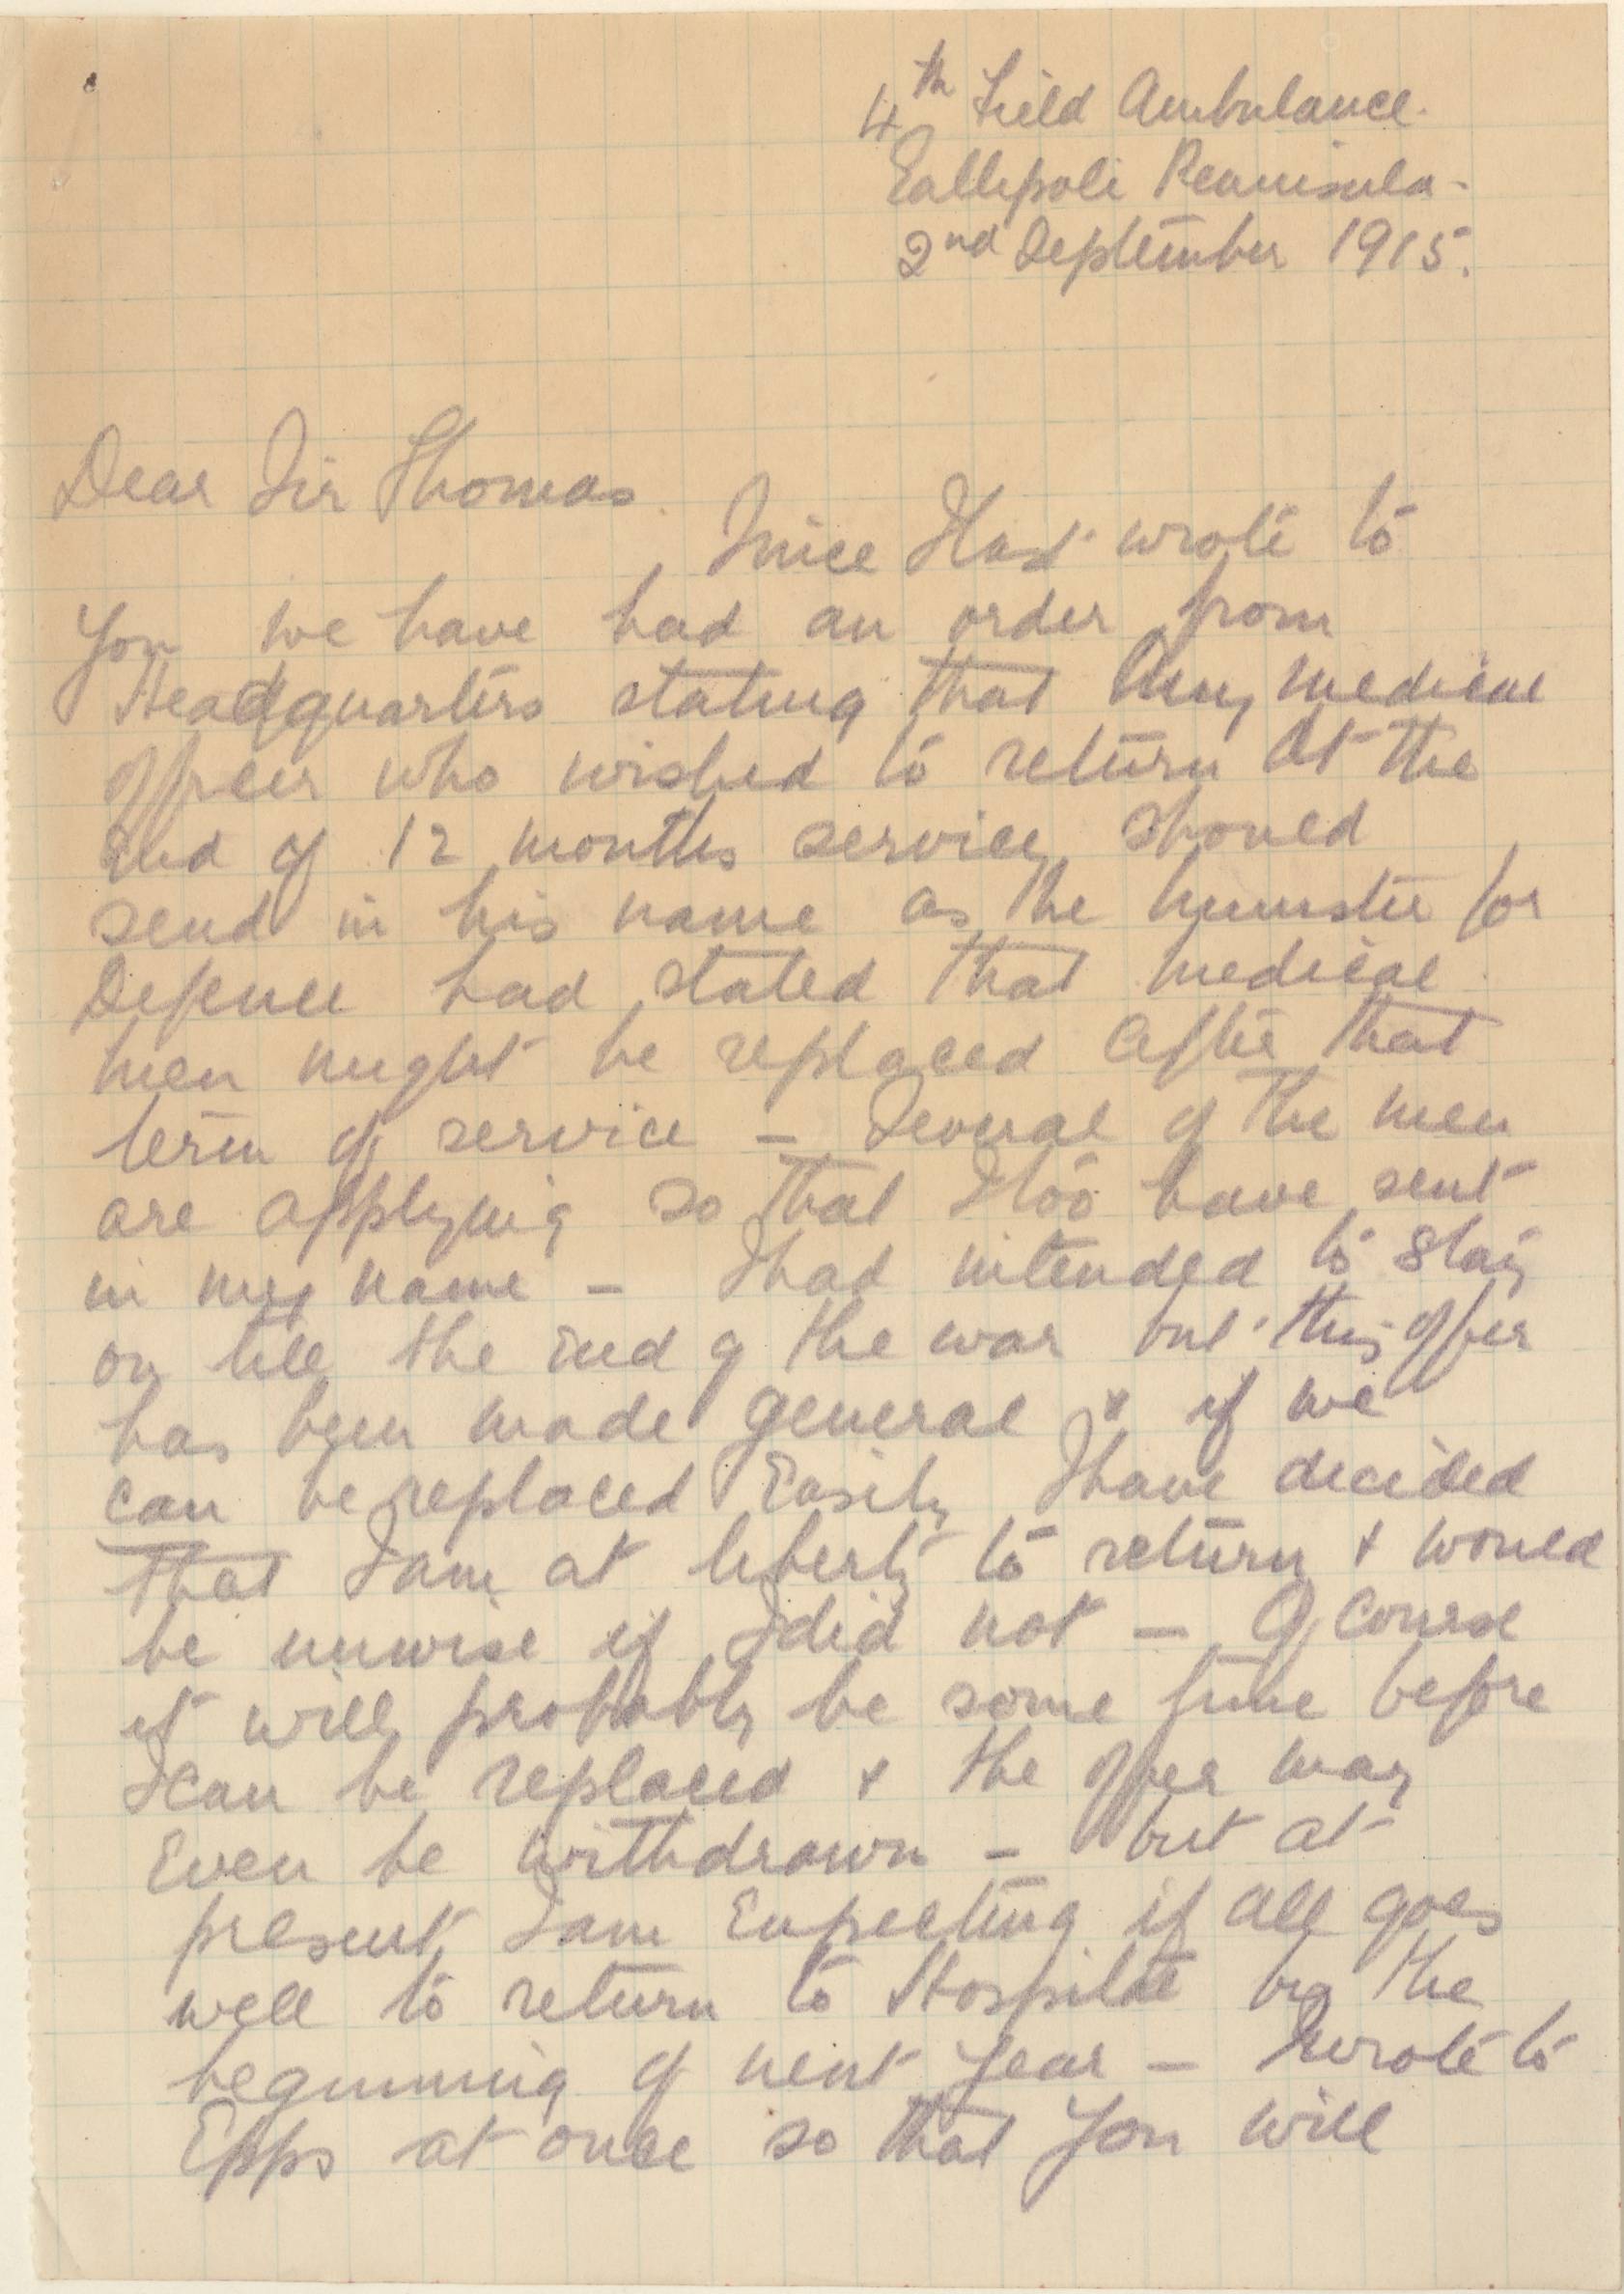 4th Field Ambulance.
Gallipoli Peninsula.
2nd September 1915.
Dear Sir Thomas.
Since I last wrote to
you we have had an order from
Headquarters stating that any medical
officer who wished to return at the
end of 12 months service should
send in his name as the minister for
Defence had stated that medical
men might be replaced after that
term of service – Several of the men
are applying so that I too have sent
in my name – I had intended to stay
on till the end of the war but this offer
has been made general & if we
can be replaced easily I have decided
that I am at liberty to return & would
be unwise if I did not – Of course
it will probably be some time before
I can be replaced & the offer may
even be withdrawn – but at
present I am expecting if all goes
well to return to Hospital by the
beginning of next year – I wrote to
Epps at once so that you will